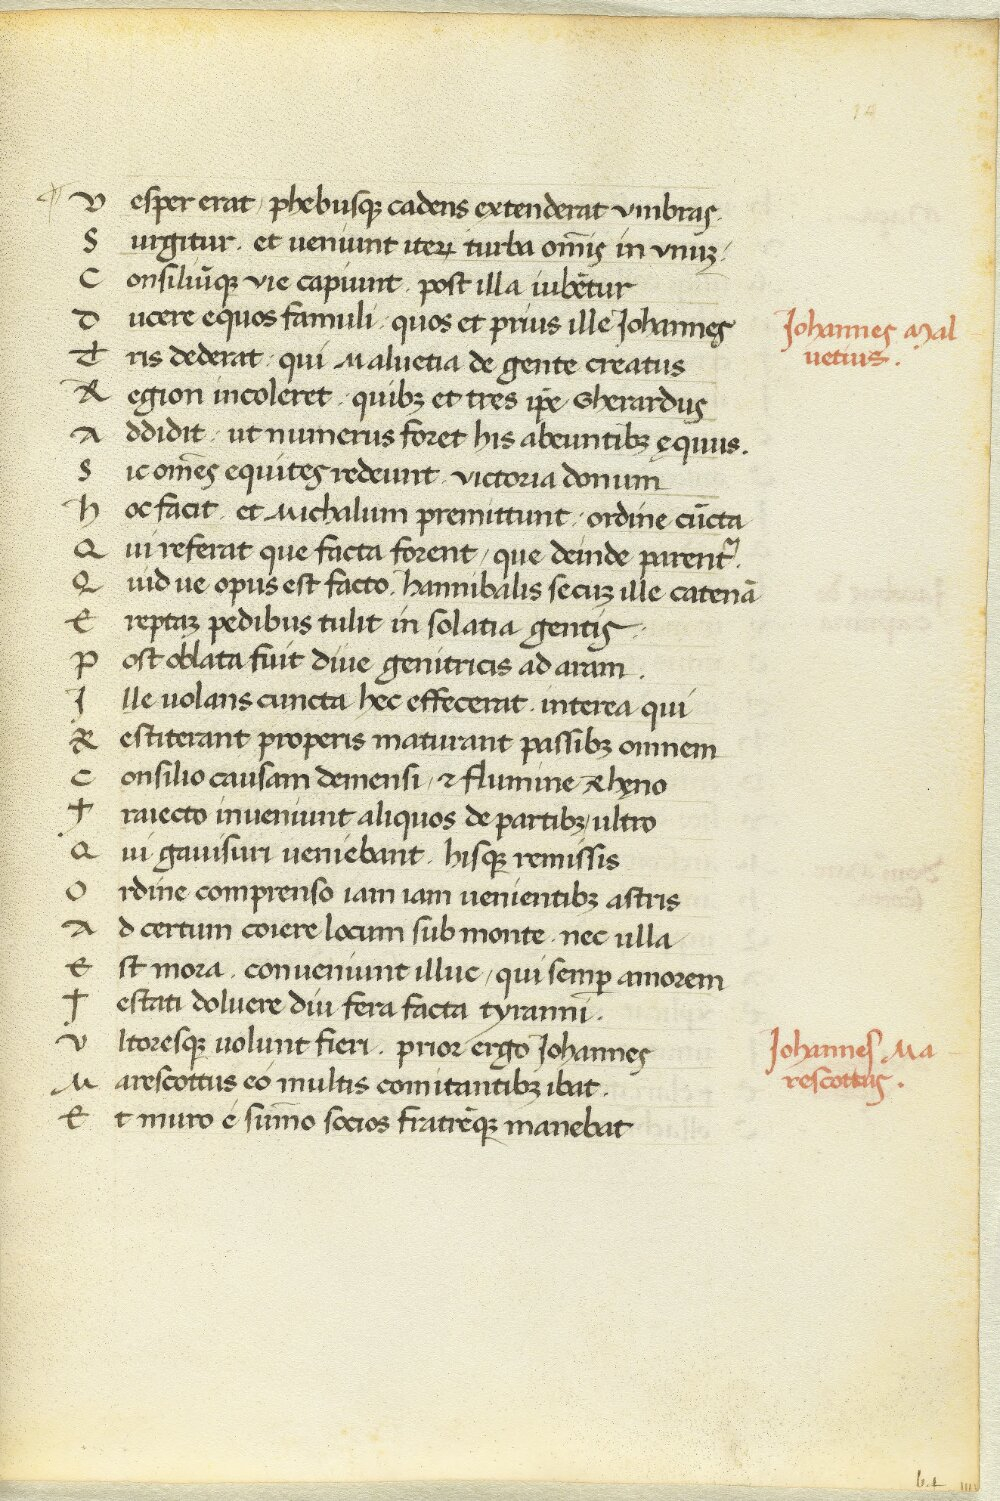 14
Vesper erat / phebusqꝫ cadens extenderat vmbras.
Surgitur . et ueniunt iteꝝ turba om̄is in vnuꝫ /
Consiliūqꝫ vie capiunt . post illa iubētur
Ducere equos famuli . quos et prius ille Johannes
Johannes Mal
uetius .
Tris dederat . qui Maluetia de gente creatus
Region incoleret . quibꝫ et tres ip̄e Gherardus
Addidit . ut numerus foret his abeuntibꝫ ęquus.
Sic om̄es equites redeunt . victoria donum
Hoc facit . et Michalum premittunt . ordine cūcta
Qui referat que facta forent / que deinde parent᷑.
Quid ue opus est facto . hannibalis secuꝫ ille catenā
Ereptaꝫ pedibus tulit in solatia gentis .
Post oblata fuit diue genitricis ad aram .
Ille uolans cuncta hec effecerat . interea qui
Restiterant properis maturant passibꝫ omnem
Consilio causam demensi / ⁊ flumine Rhęno
Traiecto inueniunt aliquos de partibꝫ / ultro
Qui gauisuri ueniebant . hisqꝫ remissis
Ordine comprenso iam iam uenientibꝫ astris
Ad certum coiere locum sub monte . nec ulla
Est mora . conueniunt illuc / qui semꝑ amorem
Testati doluere diu fera facta tyranni .
Vltoresqꝫ uolunt fieri . prior ergo Johannes
Johannes Ma
rescottus .
Marescottus eó multis comitantibꝫ ibat .
Et muro é sum̄o socios fratrēqꝫ manebat
b.4